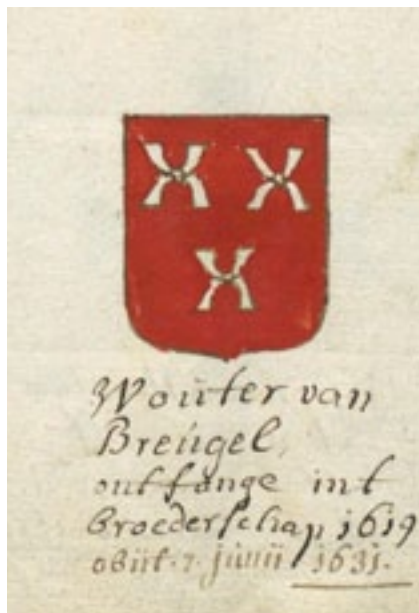 Wouter van
Breugel,
ontfange int
broederschap 1619
obiit. 7. junii 1631.